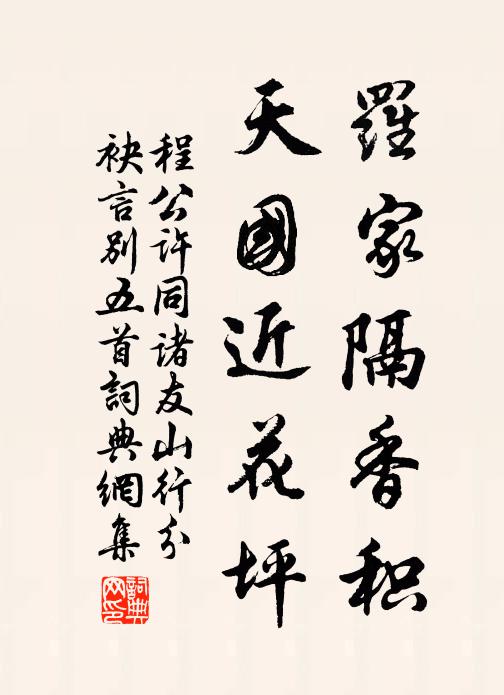 羅家隔香积
天國近花坪
程公许同諸友山行分
袂言别五首詞典網集
詞典网印